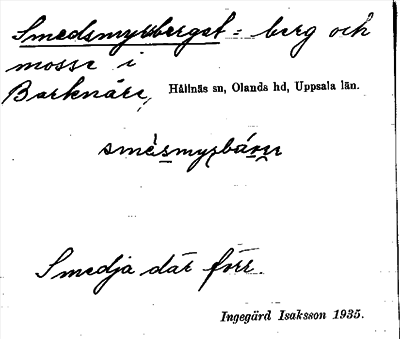 Smedsmyrberget = berg och
mosse i
Barknåre, Hållnäs sn, Olands hd, Uppsala län.
Smedja där förr.
Ingegärd Isaksson 1935.